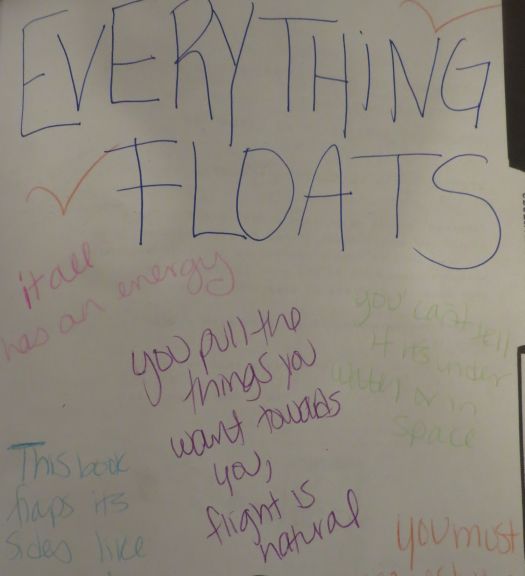 EVERYTHING
FLOATS
it all
has an energy
you pull the
things you
want towards
you,
flight is
natural
you can't tell
if its under
water or in
space
This book
flaps its
sides like
you must